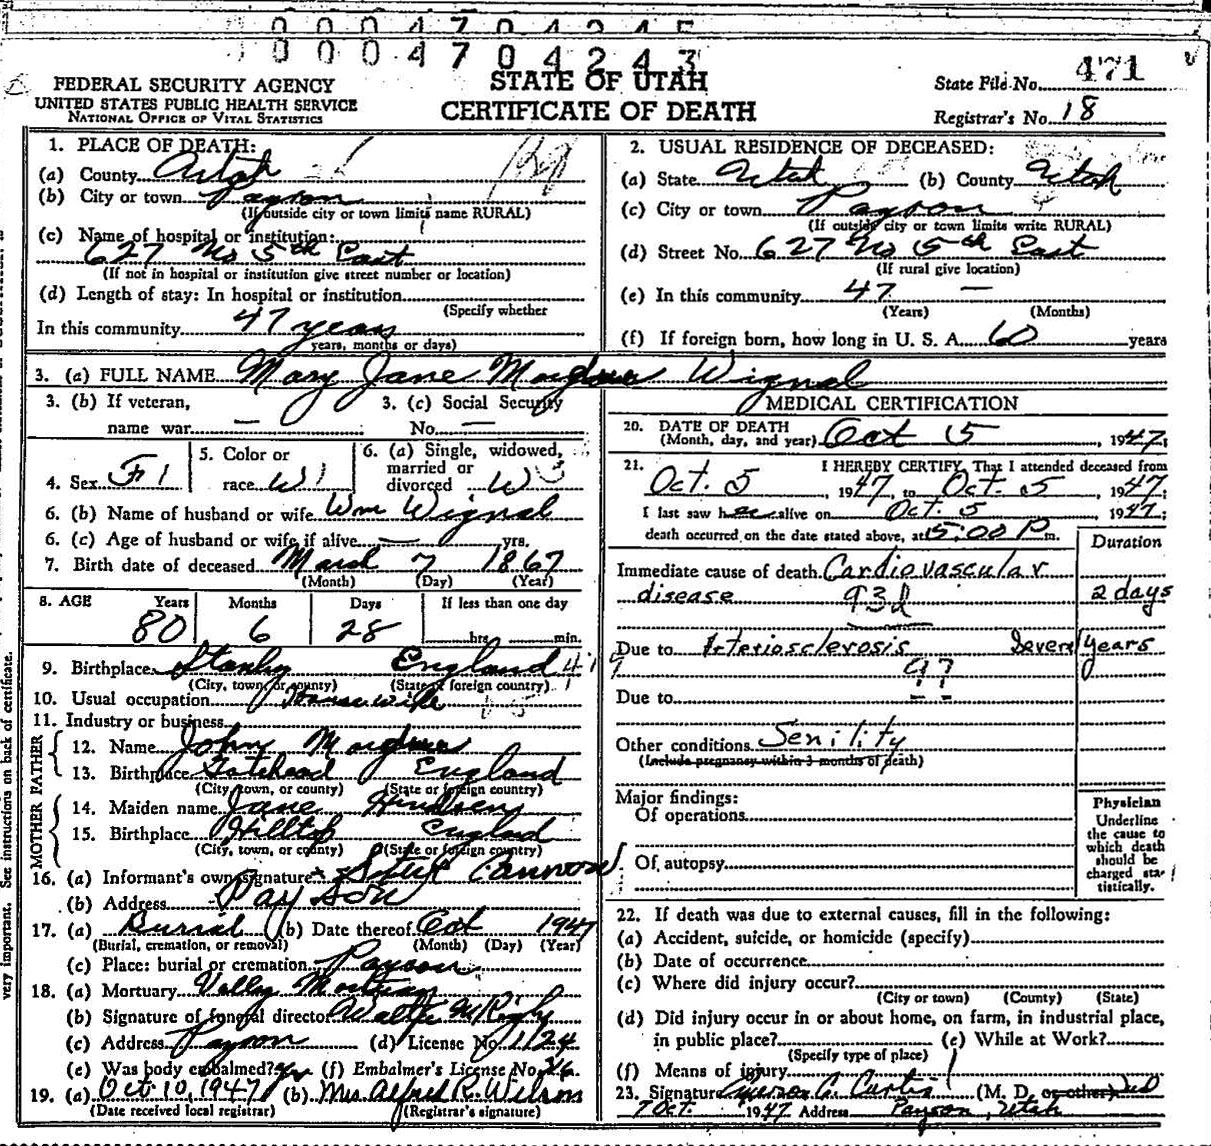 0004704243
FEDERAL SECURITY AGENCY
UNITED STATES PUBLIC HEALTH SERVICE
NATIONAL OFFICE OF VITAL STATISTICS
STATE OF UTAH
CERTIFICATE OF DEATH
State File No. 471
Registrar's No. 18
1. PLACE OF DEATH:
(a) County Utah
(b) City or town Payson
(If outside city or town limits name RURAL)
(c) Name of hospital or institution:
627 No 5th East
(If not in hospital or institution give street number or location)
(d) Length of stay: In hospital or institution
(Specify whether
In this community 47 years
years, months or days)
2. USUAL RESIDENCE OF DECEASED:
(a) State Utah (b) County Utah
(c) City or town Payson
(If outside city or town limits write RURAL)
(d) Street No. 627 No 5th East
(If rural give location)
(e) In this community 47 —
(Years) (Months)
(f) If foreign born, how long in U. S. A. 60 years
3. (a) FULL NAME Mary Jane Wignal
3. (b) If veteran,
name war —
3. (c) Social Security
No. —
4. Sex F
5. Color or
race W
6. (a) Single, widowed,
married or
divorced W
6. (b) Name of husband or wife Wm Wignal
6. (c) Age of husband or wife if alive — yrs.
7. Birth date of deceased March 7 1867
(Month) (Day) (Year)
8. AGE Years Months Days If less than one day
80 6 28 hrs. min.
9. Birthplace England
(City, town, or county) (State or foreign country)
10. Usual occupation Housewife
11. Industry or business
FATHER
12. Name John
13. Birthplace England
(City, town, or county) (State or foreign country)
MOTHER
14. Maiden name Jane
15. Birthplace Hilltop England
(City, town, or county) (State or foreign country)
16. (a) Informant's own signature
(b) Address Payson
17. (a) Burial (b) Date thereof Oct 1947
(Burial, cremation, or removal) (Month) (Day) (Year)
(c) Place: burial or cremation Payson
18. (a) Mortuary Valley Mortuary
(b) Signature of funeral director
(c) Address Payson (d) License No. 1124
(e) Was body embalmed? (f) Embalmer's License No.
19. (a) Oct. 10, 1947 (b) Mrs Alfred R. Wilson
(Date received local registrar) (Registrar's signature)
MEDICAL CERTIFICATION
20. DATE OF DEATH
(Month, day, and year) Oct 5, 1947;
21. I HEREBY CERTIFY, That I attended deceased from
Oct. 5, 1947, to Oct. 5 1947
I last saw her alive on Oct. 5 1947;
death occurred on the date stated above, at 5:00 P m.
Duration
Immediate cause of death Cardiovascular
disease 93d 2 days
Due to Arteriosclerosis years
97
Due to
Other conditions Senility
(Include pregnancy within 3 months of death)
Major findings:
Of operations
Of autopsy
Physician
Underline
the cause to
which death
should be
charged sta-
tistically.
22. If death was due to external causes, fill in the following:
(a) Accident, suicide, or homicide (specify)
(b) Date of occurrence
(c) Where did injury occur?
(City or town) (County) (State)
(d) Did injury occur in or about home, on farm, in industrial place,
in public place? (e) While at Work?
(Specify type of place)
(f) Means of injury
23. Signature C. Curtis (M. D. or other) MD
7 Oct. 1947 Address Payson, Utah
very important. See instructions on back of certificate.